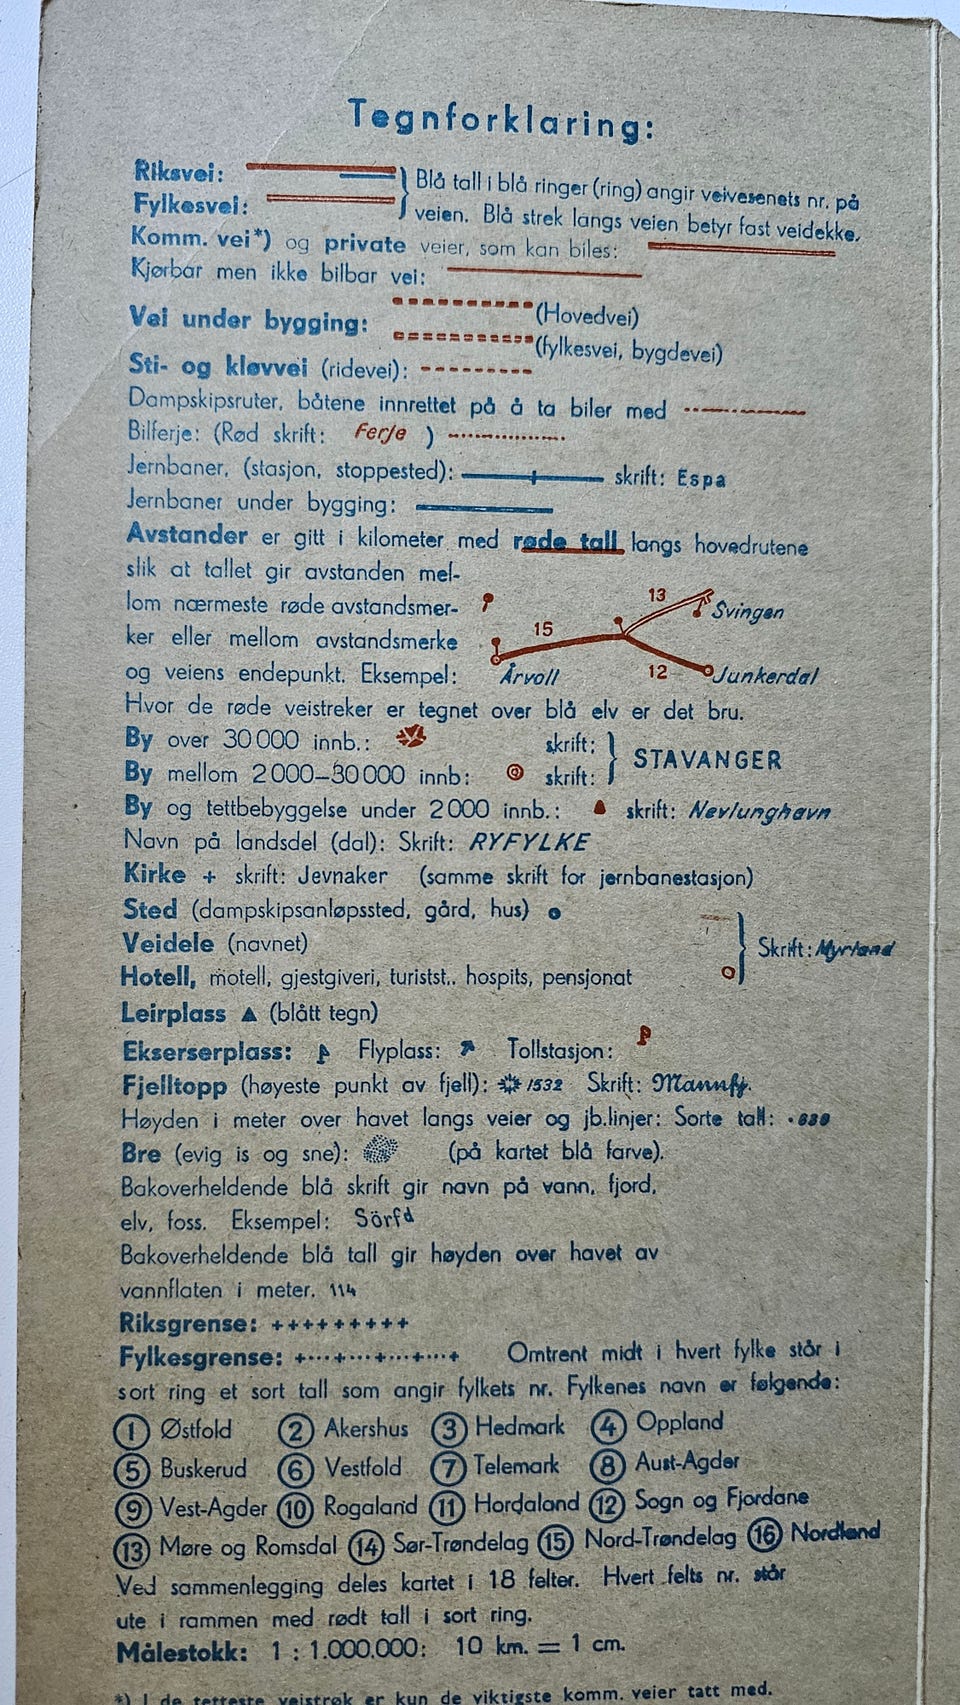 Tegnforklaring:
Riksvei:
Fylkesvei:
Blå tall i blå ringer (ring) angir veivesenets nr. på
veien. Blå strek langs veien betyr fast veidekke.
Komm. vei*) og private veier, som kan biles:
Kjørbar men ikke bilbar vei:
Vei under bygging:
(Hovedvei)
(fylkesvei, bygdevei)
Sti- og kløvvei (ridevei):
Dampskipsruter, båtene innrettet på å ta biler med
Bilferje: (Rød skrift: Ferje )
Jernbaner, (stasjon, stoppested): skrift: Espa
Jernbaner under bygging:
Avstander er gitt i kilometer med røde tall langs hovedrutene
slik at tallet gir avstanden mel-
lom nærmeste røde avstandsmer-
ker eller mellom avstandsmerke
og veiens endepunkt. Eksempel:
13
Svingen
15
Årvoll
12
Junkerdal
Hvor de røde veistreker er tegnet over blå elv er det bru.
By over 30 000 innb.: skrift:
By mellom 2 000–30 000 innb: skrift:
STAVANGER
By og tettbebyggelse under 2 000 innb.: skrift: Nevlunghavn
Navn på landsdel (dal): Skrift: RYFYLKE
Kirke + skrift: Jevnaker (samme skrift for jernbanestasjon)
Sted (dampskipsanløpssted, gård, hus)
Veidele (navnet)
Skrift: Myrland
Hotell, motell, gjestgiveri, turistst.. hospits, pensjonat
Leirplass ▲ (blått tegn)
Ekserserplass: Flyplass: Tollstasjon:
Fjelltopp (høyeste punkt av fjell): 1532 Skrift: Mannfj.
Høyden i meter over havet langs veier og jb.linjer: Sorte tall: · 630
Bre (evig is og sne): (på kartet blå farve).
Bakoverheldende blå skrift gir navn på vann, fjord,
elv, foss. Eksempel: Sörfd
Bakoverheldende blå tall gir høyden over havet av
vannflaten i meter. 114
Riksgrense: +++++++++
Fylkesgrense: +···+···+···+···+ Omtrent midt i hvert fylke står i
sort ring et sort tall som angir fylkets nr. Fylkenes navn er følgende:
1 Østfold 2 Akershus 3 Hedmark 4 Oppland
5 Buskerud 6 Vestfold 7 Telemark 8 Aust-Agder
9 Vest-Agder 10 Rogaland 11 Hordaland 12 Sogn og Fjordane
13 Møre og Romsdal 14 Sør-Trøndelag 15 Nord-Trøndelag 16 Nordland
Ved sammenlegging deles kartet i 18 felter. Hvert felts nr. står
ute i rammen med rødt tall i sort ring.
Målestokk: 1 : 1.000.000: 10 km. = 1 cm.
*) I de tetteste veistrøk er kun de viktigste komm. veier tatt med.